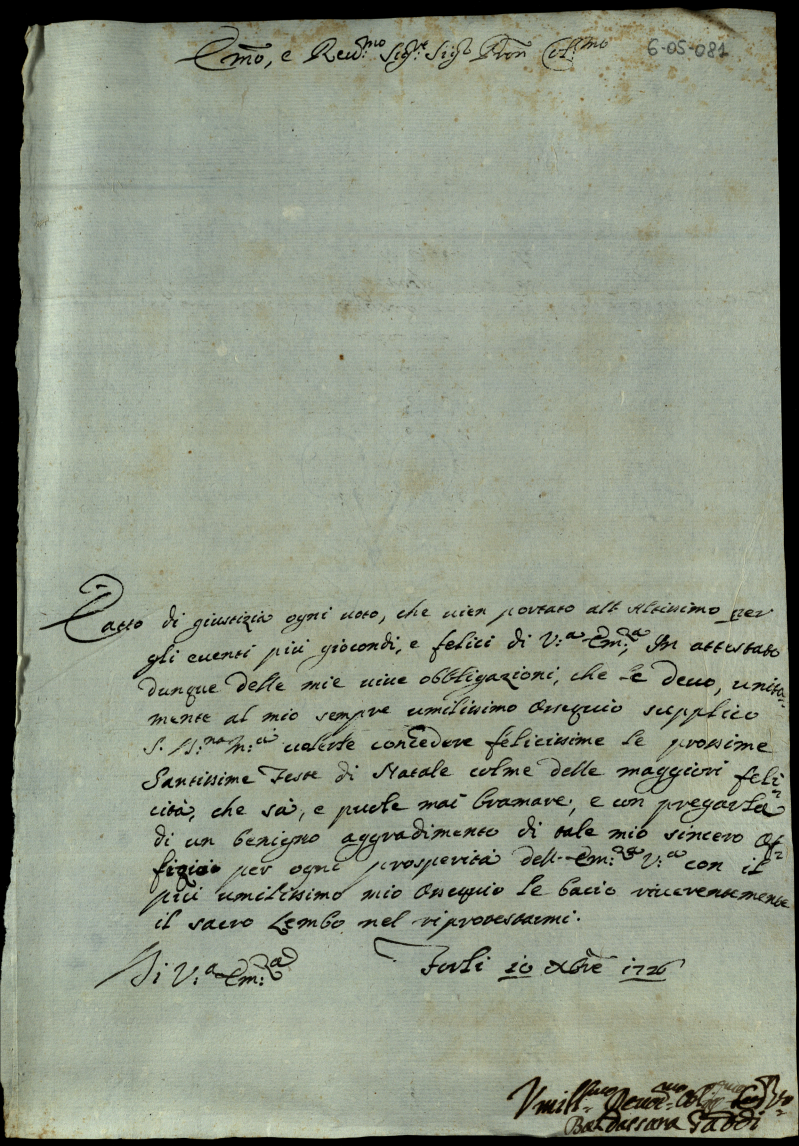 Em̃o, e Reu:mo Sig:r Sig:r Pr̃on Col:mo
6-05-081
È atto di giustizia ogni uoto, che uien portato all' Altissimo per
gli euenti più giocondi, e felici di V:a Em:za, In attestato
dunque delle mie uiue obbligazioni, che le deuo, unita-
mente al mio sempre umilissimo Ossequio supplico
uolerle concedere felicissime le prossime
Santissime Feste di Natale colme delle maggiori feli-
cità, che sà, e puole mai bramare, e con pregarla
di un benigno aggradimento di tale mio sincero Of-
fizio per ogni prosperità dell' Em:za V:a con il
più umilissimo mio Ossequio le bacio riuerentemente
il sacro Lembo nel riprotestarmi.
Di V:a Em:za
Forlì 10 Xbr̃e 1726
Vmill:mo Deuot:mo Obl:mo Seru:re
Baldassarra Gaddi